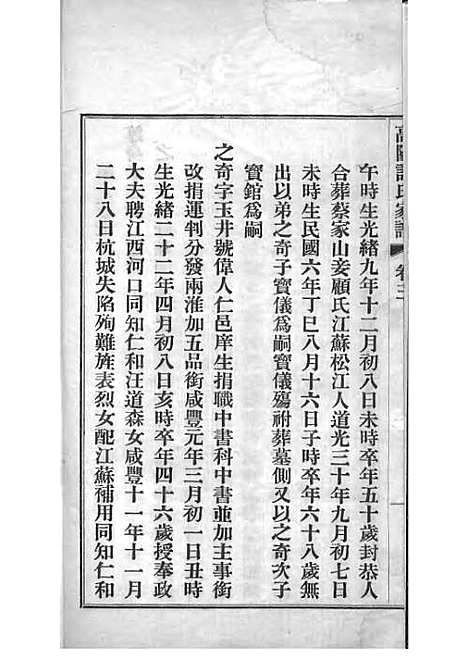 高陽許氏家譜 卷三
午時生光緒九年十二月初八日未時卒年五十歲封恭人
合葬蔡家山妾顧氏江蘇松江人道光三十年九月初七日
未時生民國六年丁巳八月十六日子時卒年六十八歲無
出以弟之奇子寶儀為嗣寶儀殤祔葬墓側又以之奇次子
寶錧為嗣
之奇字玉井號偉人仁邑庠生捐職中書科中書並加主事銜
改捐運判分發兩淮加五品銜咸豐元年三月初一日丑時
生光緒二十二年四月初八日亥時卒年四十六歲授奉政
大夫聘江西河口同知仁和汪道森女咸豐十一年十一月
二十八日杭城失陷殉難旌表烈女配江蘇補用同知仁和